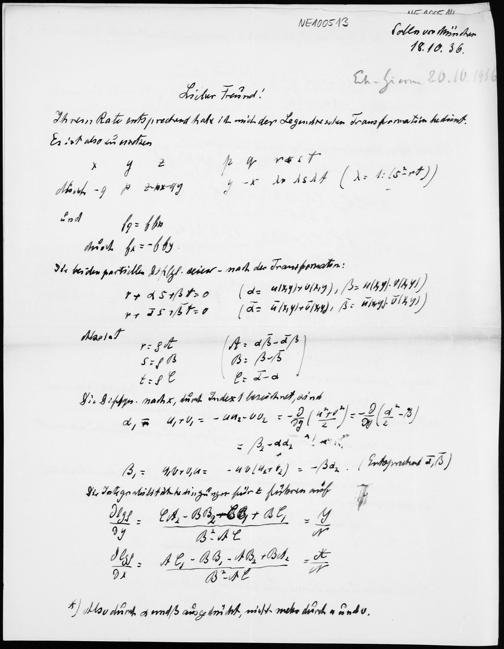 NE100513
Solln vor München
18.10.36.
20.10.1936
Lieber Freund!
Ihrem Rate entsprechend habe ich mich der Legendreschen Transformation bedient.
Es ist also zu setzen
x y z p q r s t
durch -q p z-px-qy y -x λr λs λt (λ = 1:(s²-rt))
und
durch
Die beiden partielle Diffgl. seien - nach der Transformation:
r + α s + β t = 0 (α = u(x,y)+v(x,y), β = u(x,y)·v(x,y))
r + ᾱ s + β̄ t = 0 (ᾱ = ū(x,y)+v̄(x,y), β̄ = ū(x,y)·v̄(x,y))
Also ist
r = ρ A (A = αβ̄ - ᾱβ
s = ρ B B = β - β̄
t = ρ C C = ᾱ - α
Die Diffqu. nach x, durch Index 1 bezeichnet, sind
α₁ = u₁+v₁ = -uu₂-vv₂ = -∂/∂y((u²+v²)/2) = -∂/∂y(α²/2 - β)
= β₂ - αα₂
β₁ = u₁v+v₁u = -uv(u₂+v₂) = -βα₂. (Entsprechend ᾱ, β̄)
Die Integrabilitätsbedingungen für z führen auf
∂lgρ/∂y = (CA₂ - BB₂ - CB₁ + BC₁)/(B²-AC) = Y/N
∂lgρ/∂x = (AC₁ - BB₁ - AB₂ + BA₂)/(B²-AC) = X/N
*) Also durch α und β ausgedrückt, nicht mehr durch u und v.